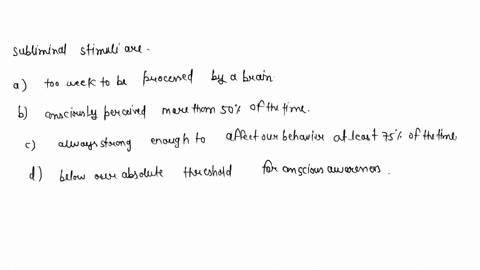 subliminal stimuli are.
a) too week to be processed by a brain
b) consciously perceived more than 50% of the time.
c) always strong enough to affect our behavior at least 75% of the time
d) below our absolute threshold for conscious awareness.